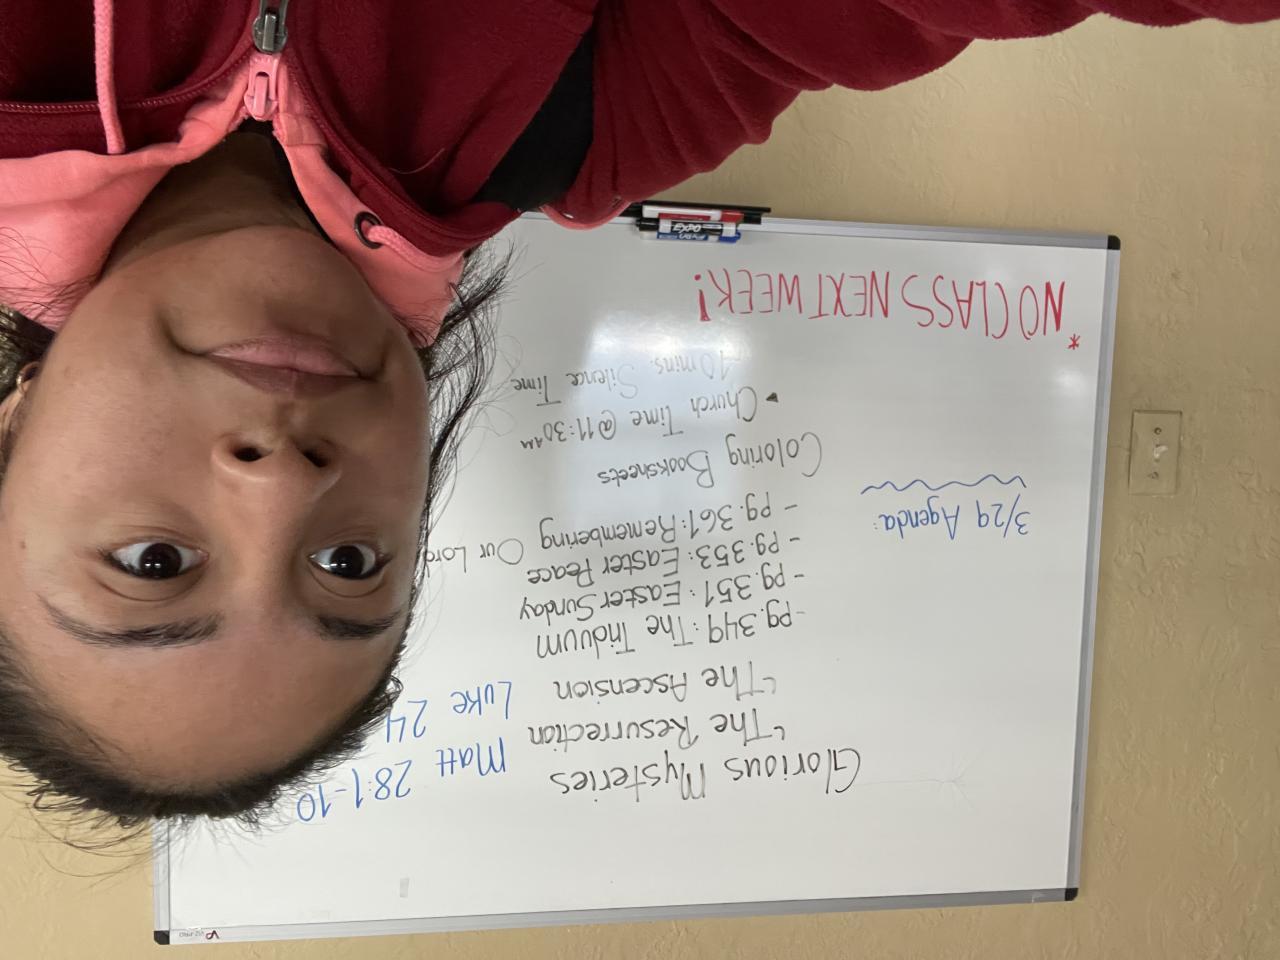 Glorious Mysteries
↳ The Resurrection Matt 28:1-10
↳ The Ascension Luke 24
- pg. 349: The Triduum
- pg. 351: Easter Sunday
- pg. 353: Easter Peace
- pg. 361: Remembering Our Lord
3/29 Agenda:
Coloring Booksheets
Church Time @ 11:30 AM
10 mins. Silence Time
* NO CLASS NEXT WEEK!
EXPO
VIZ-PRO